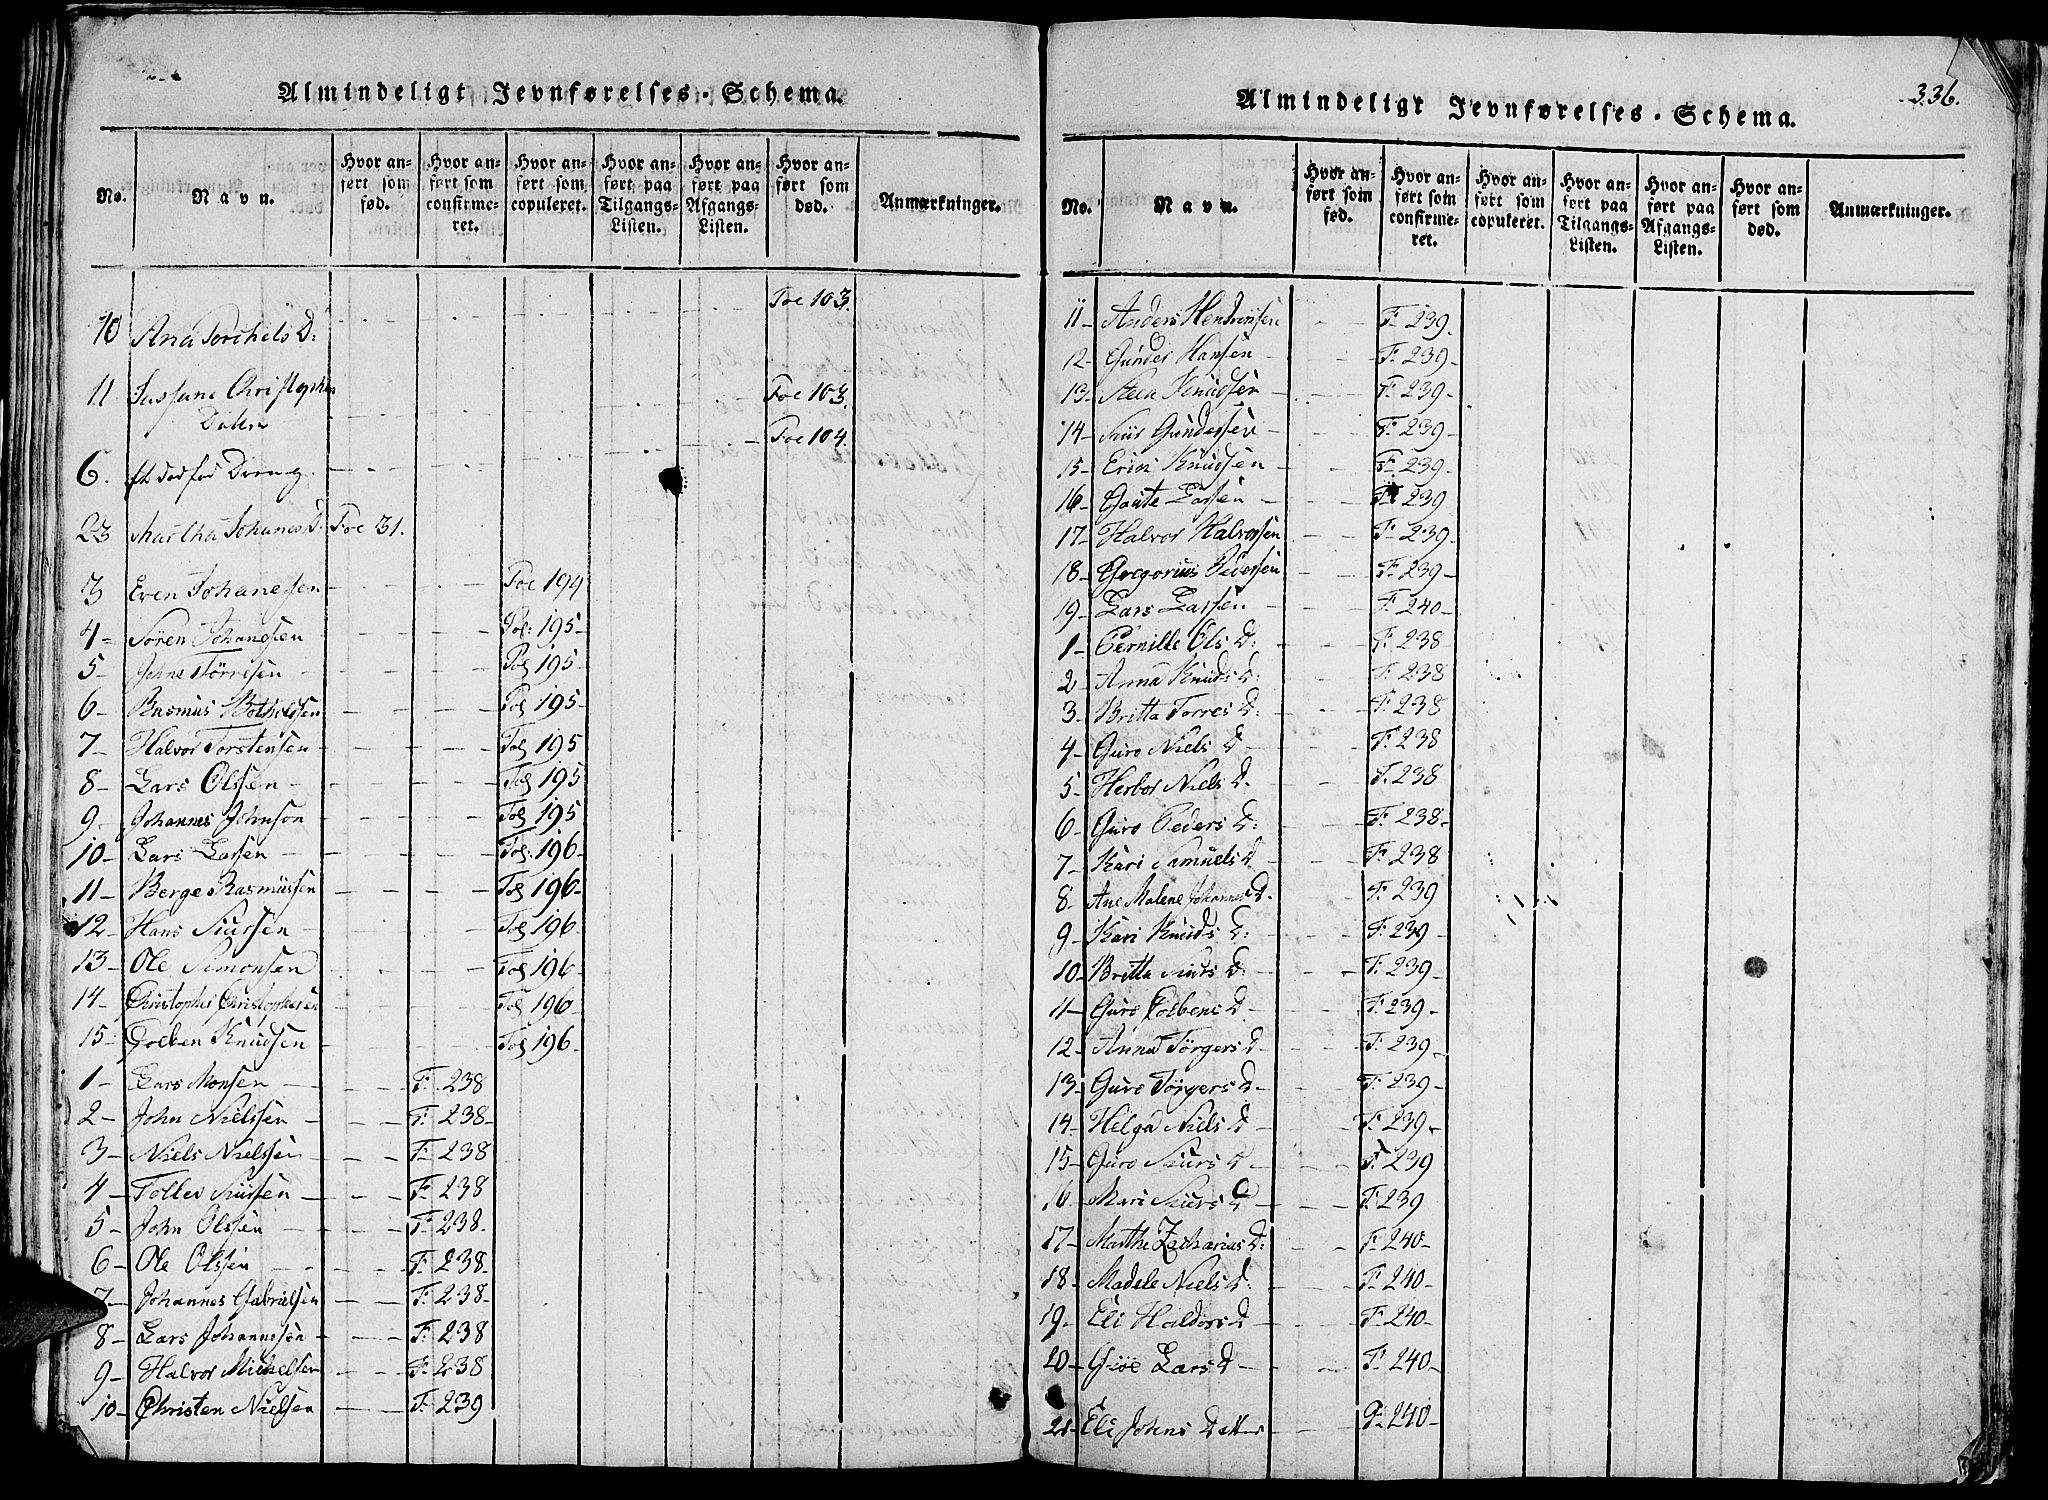 Almindeligt Jevnførelses-Schema.
No. Navn. Hvor anført som fød. Hvor anført som confirmeret. Hvor anført som copuleret. Hvor anført paa Tilgangs-Listen. Hvor anført paa Afgangs-Listen. Hvor anført som død. Anmærkninger.
10 Ana Torchels D: Foe 103.
11 Christophers Foe 103.
Datter
6. Foe 104.
23 Martha Johanes D. Foe 31.
3 Even Johanessen Foe 194
4 Sören Johanesen Fol: 195
5 Johne Törrisen Fol 195
6 Rasmus Botholfsen Fol 195
7 Halvor Torstensen Fol 195
8 Lars Olssen Fol 195
9 Johannes Johnson Fol 195
10 Lars Larsen Fol: 196
11 Berge Rasmüssen Fol 196
12 Hans Siursen Fol 196
13 Ole Simonsen Fol 196
14 Christopher Christophersen Fol 196
15 Golben Knudsen Fol 196
1 Lars Monsen F. 238
2 John Nielssen F. 238
3 Niels Nielssen F. 238
4 Tollev Siursen F. 238
5 John Olssen F. 238
6 Ole Olssen F. 238
7 Johannes Gabrielsen F. 238
8 Lars Johannessen F. 238
9 Halvor Michelsen F. 238
10 Christen Nielsen F. 239
336.
Almindeligt Jevnførelses-Schema.
No. Navn. Hvor anført som fød. Hvor anført som confirmeret. Hvor anført som copuleret. Hvor anført paa Tilgangs-Listen. Hvor anført paa Afgangs-Listen. Hvor anført som død. Anmærkninger.
11 Anders Hendrissen F. 239
12 Gunder Hansen F. 239
13 Steen Knudsen F. 239
14 Siur Gundersen F. 239
15 Knudsen F. 239
16 Goute Larsen F. 239
17 Halvor Halvorsen F. 239
18 Gregorius Pedersen F. 239
19 Lars Larsen F. 240
1 Pernille Ols D: F. 238
2 Anna Knuds D: F. 238
3 Britta Torres D: F. 238
4 Guro Niels D F. 238
5 Herbor Niels D. F. 238
6 Guro Peders D: F. 238
7 Kari Samuels D F. 238
8 Ane Malene Johannes D. F. 239
9 Kari Knuds D: F. 239
10 Britta Siurs D: F. 239
11 Guro Golbens D F. 239
12 Anna Törgers D F. 239
13 Guro Törgers D F. 239
14 Helga Niels D F. 239
15 Guro Siurs D F. 239
16 Mari Siurs D F. 239
17 Marthe Zacharias D: F. 240
18 Madele Niels D. F. 240
19 Eli Haldors D F. 240
20 Giöe Lars D F. 240
21 Eli Johns Datter F. 240